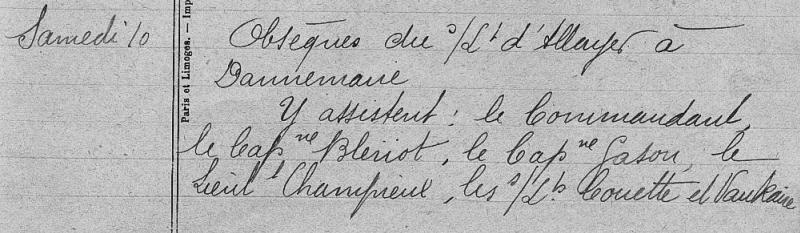 Samedi 10
Obsèques du s/Lt d'Allayer à
Dannemarie
Y assistent : le Commandant,
le Capne Bleriot, le Capne Gason, le
Lieut t Champreux, les s/Lts Couette et Vaukaire
Paris et Limoges. — Imp